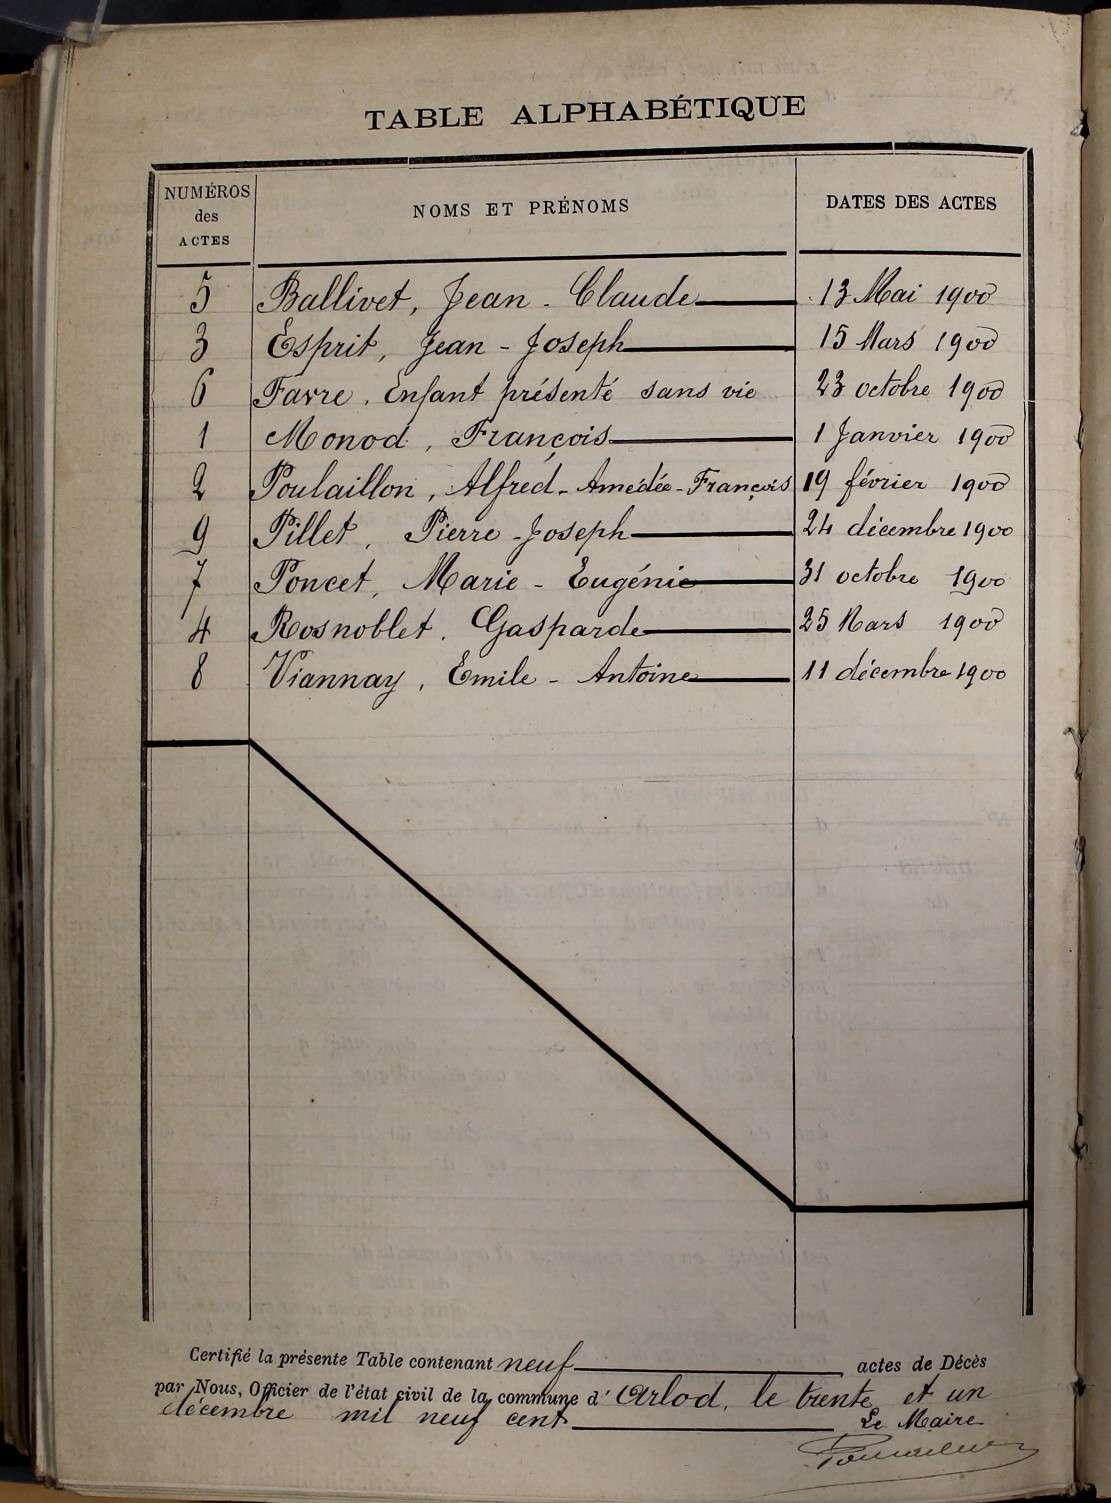 TABLE ALPHABÉTIQUE
NUMÉROS des ACTES NOMS ET PRÉNOMS DATES DES ACTES
5 Ballivet, Jean - Claude 13 Mai 1900
3 Esprit, Jean - Joseph 15 Mars 1900
6 Favre. Enfant présenté sans vie 23 octobre 1900
1 Monod, François 1 Janvier 1900
2 Poulaillon, Alfred - Amédée - François 19 février 1900
9 Pillet, Pierre - Joseph 24 décembre 1900
7 Poncet, Marie - Eugénie 31 octobre 1900
4 Rosnoblet. Gasparde 25 Mars 1900
8 Viannay, Emile - Antoine 11 décembre 1900
Certifié la présente Table contenant neuf actes de Décès
par Nous, Officier de l'état civil de la commune d' Arlod, le trente et un
décembre mil neuf cent Le Maire